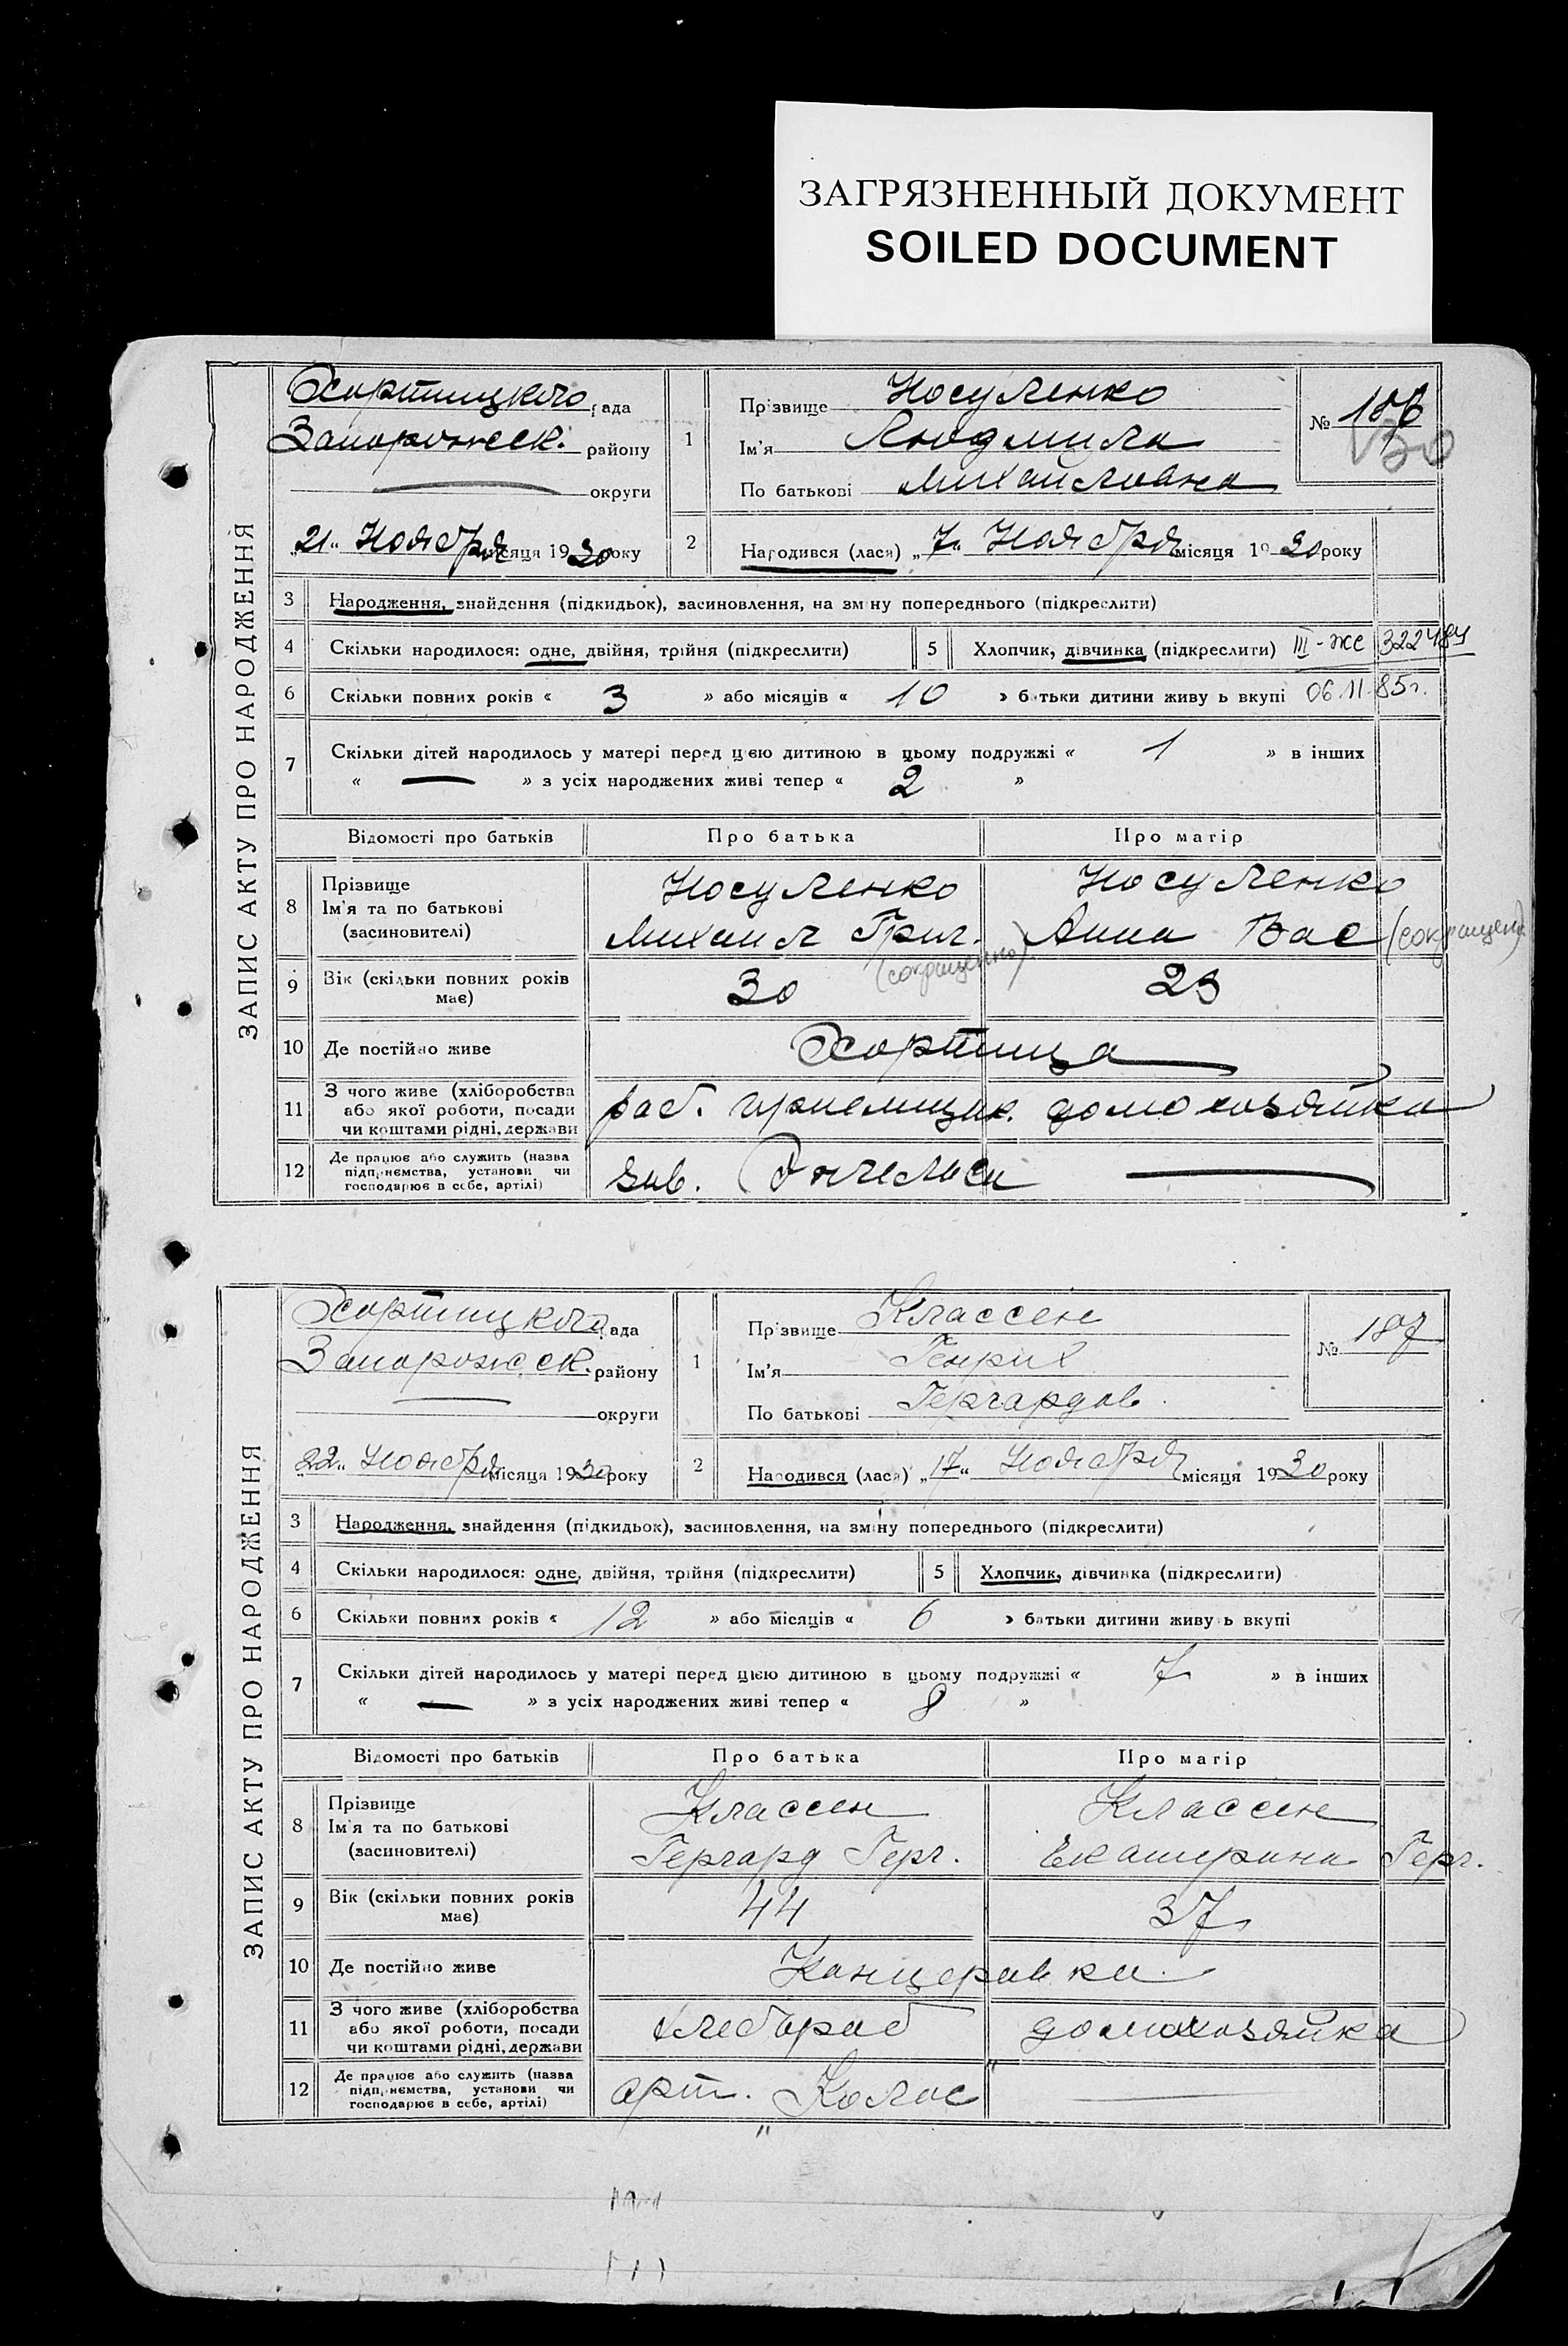 ЗАГРЯЗНЕННЫЙ ДОКУМЕНТ
SOILED DOCUMENT
ЗАПИС АКТУ ПРО НАРОДЖЕННЯ
Хортицкого ради
Запорожск. району
округи
„21“ Ноября місяця 1930 року
1
Прізвище Носуленко
Ім'я Людмила
По батькові Михайловна
№ 186
2
Народився (лася) „7“ Ноября місяця 1930 року
3 Народження, знайдення (підкидьок), засиновлення, на зміну попереднього (підкреслити)
4 Скільки народилося: одне, двійня, трійня (підкреслити)
5 Хлопчик, дівчинка (підкреслити) III-ЖС 322484
6 Скільки повних років « 3 » або місяців « 10 » батьки дитини живуть вкупі 06.11.85г.
7 Скільки дітей народилось у матері перед цією дитиною в цьому подружжі « 1 » в інших
« — » з усіх народжених живі тепер « 2 »
Відомості про батьків Про батька Про матір
8 Прізвище Носуленко Носуленко
Ім'я та по батькові Михаил Григ. Анна Вас (сокращен)
(засиновителі) (сокращенно)
9 Вік (скільки повних років має) 30 23
10 Де постійно живе Хортица
11 З чого живе (хліборобства або якої роботи, посади чи коштами рідні, держави раб. приемщик. домохозяйка
12 Де працює або служить (назва підприємства, установи чи господарює в себе, артілі) зав. Энгельса —
ЗАПИС АКТУ ПРО НАРОДЖЕННЯ
Хортицкого ради
Запорожск. району
округи
„22“ Ноября місяця 1930 року
1
Прізвище Классен
Ім'я Генрих
По батькові Гергардов.
№ 187
2
Народився (лася) „17“ Ноября місяця 1930 року
3 Народження, знайдення (підкидьок), засиновлення, на зміну попереднього (підкреслити)
4 Скільки народилося: одне, двійня, трійня (підкреслити)
5 Хлопчик, дівчинка (підкреслити)
6 Скільки повних років « 12 » або місяців « 6 » батьки дитини живуть вкупі
7 Скільки дітей народилось у матері перед цією дитиною в цьому подружжі « 7 » в інших
« — » з усіх народжених живі тепер « 8 »
Відомості про батьків Про батька Про матір
8 Прізвище Классен Классен
Ім'я та по батькові Гергард Герг. Екатерина Герг.
(засиновителі)
9 Вік (скільки повних років має) 44 37
10 Де постійно живе Канцеровка
11 З чого живе (хліборобства або якої роботи, посади чи коштами рідні, держави хлебораб домохозяйка
12 Де працює або служить (назва підприємства, установи чи господарює в себе, артілі) арт. „Колос“ —